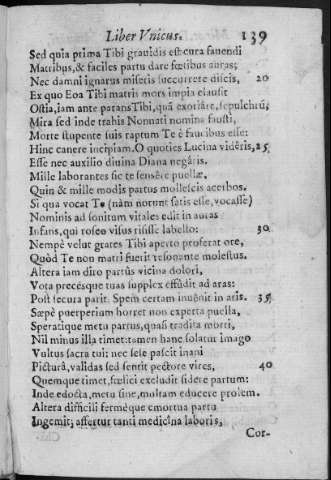 Liber Vnicus. 139
Sed quia prima Tibi grauidis est cura fauendi
Matribus, & faciles partu dare fœtibus auras;
Nec damni ignarus miseris succurrere discis, 20
Ex quo Eoa Tibi matris mors impia clausit
Ostia, iam ante parans Tibi, quã exorirâre, sepulchrũ;
Mira sed inde trahis Nonnati nomina fausti,
Morte stupente suis raptum Te è faucibus esse:
Hinc canere incipiam. O quoties Lucina vidêris, 25
Esse nec auxilio diuina Diana negâris.
Mille laborantes sic te sensêre puellæ.
Quin & mille modis partus mollescis acerbos.
Si qua vocat Te (nàm norunt satis esse, vocasse)
Nominis ad sonitum vitales edit in auras
Infans, qui roseo visus risisse labello: 30
Nempè velut grates Tibi aperto proferat ore,
Quòd Te non matri fuerit resonante molestus.
Altera iam diro partûs vicina dolori,
Vota precésque tuas supplex effudit ad aras:
Post secura parit. Spem certam inuênit in aris. 35
Sæpè puerperium horret non experta puella,
Speratique metu partus, quasi tradita morti,
Nil minus illa timet: tamen hanc solatur imago
Vultus sacra tui: nec sese pascit inani
Picturâ, validas sed sentit pectore vires, 40
Quemque timet, fœlici excludit sidere partum:
Inde edocta, metu sine, multam educere prolem.
Altera difficili fermèque emortua partu
Ingemit; affertur tanti medicîna laboris,
Cor-